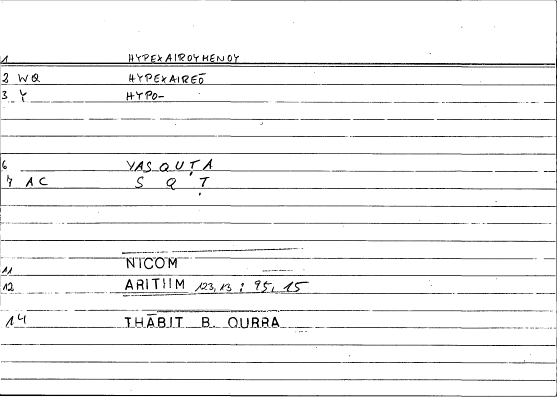 1 HYPEXAIROYMENOY
2 WQ HYPEXAIREŌ
3 Y HYPO-
6 YASQUṬA
7 AC S Q Ṭ
11 NICOM
12 ARITHM 123,13 : 95,15
14 THĀBIT B. QURRA